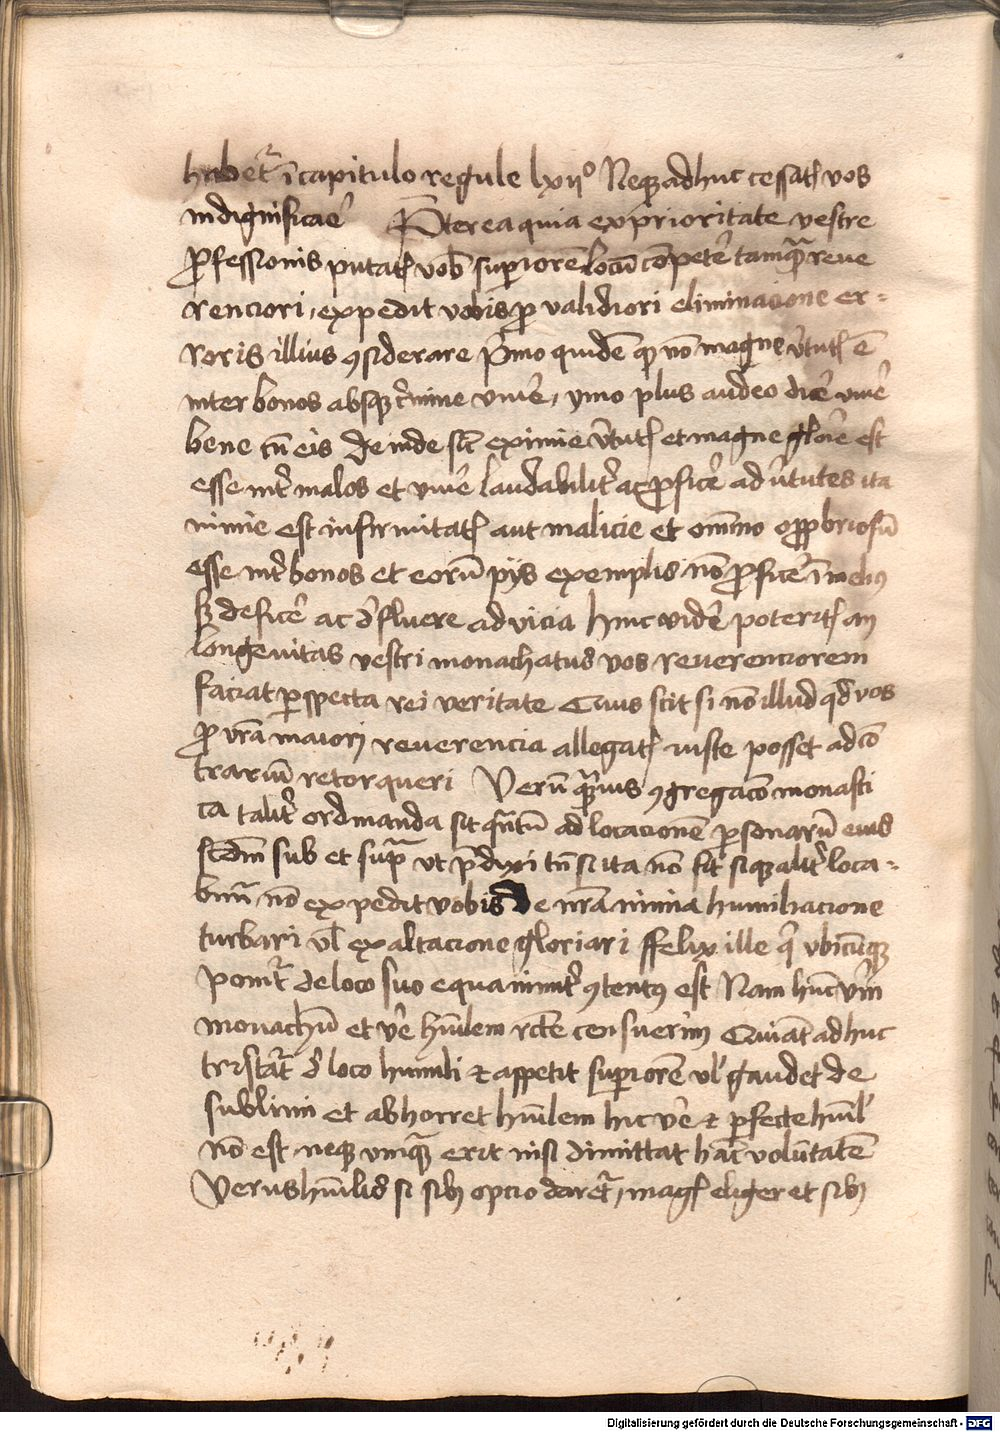 habet᷑ ī capitulo regule lxii° Neqꝫ adhuc cessatꝭ vos
indignificar̄ Pt̄erea quia ex prioritate vestre
ꝓfessionis putatꝭ vob̄ superiorē locū cōpeter̄ tamqᷓ reue
renciori, expedit vobis ꝓ validiori eliminacione er-
roris illius ꝯsiderare p̄mo quidē qꝫ nō magne v̄tutꝭ ē
inter bonos absqꝫ c̄mine viuer̄, ymo plus audeo dicē viuē
bene cū eis Deinde sic̄ eximie v̄tutꝭ et magne glorie est
esse int̄ malos et viuē laudabilit̄ ac ꝓficer̄ ad v̄tutes ita
nimie est infirmitatꝭ aut malicie et om̄ino opꝓbriosū
esse int̄ bonos et eorū pijs exemplis nō ꝓficē ī meliꝰ
sꝫ deficer̄ ac d̄fluere ad vicia hinc videē poteritꝭ an
longeuitas vestri monachatus vos reuerenciorem
faciat ꝑspecta rei veritate Cuius scit si nō illud qd̄ vos
ꝓ vr̄a maiori reuerencia allegatꝭ iuste posset ad cō
trariū retorqueri Verū qᷓuis ꝯgregac̄o monasti
ca talit̄ ordinanda sit qᷓntū ad locacionē ꝑsonarū eius
scd̄m sub et sup̄ ut p̄dixi tn̄ si ita nō fit siqꝫ alit̄ loca-
bim̄ nō expedit vobis de vr̄a nimia humiliacione
turbari vl̄ exaltacione gloriari ffelix ille q̄ vbicūqꝫ
ponit᷑ de loco suo equanimit̄ ꝯtentꝰ est Nam hūc v̄m
monachū et v̄e hūilem rc̄te censuerim Qui aūt adhuc
tristat᷑ d̄ loco humili et appetit superiorē vl̄ gaudet de
sublimi et abhorret hūilem hic v̄e et ꝑfecte hūil̄
nō est neqꝫ vnqᷓ erit nisi dimittat hāc volūtatē
Verus hūilis si sibi opcio daret᷑, magꝭ eligeret sibi
Digitalisierung gefördert durch die Deutsche Forschungsgemeinschaft - DFG